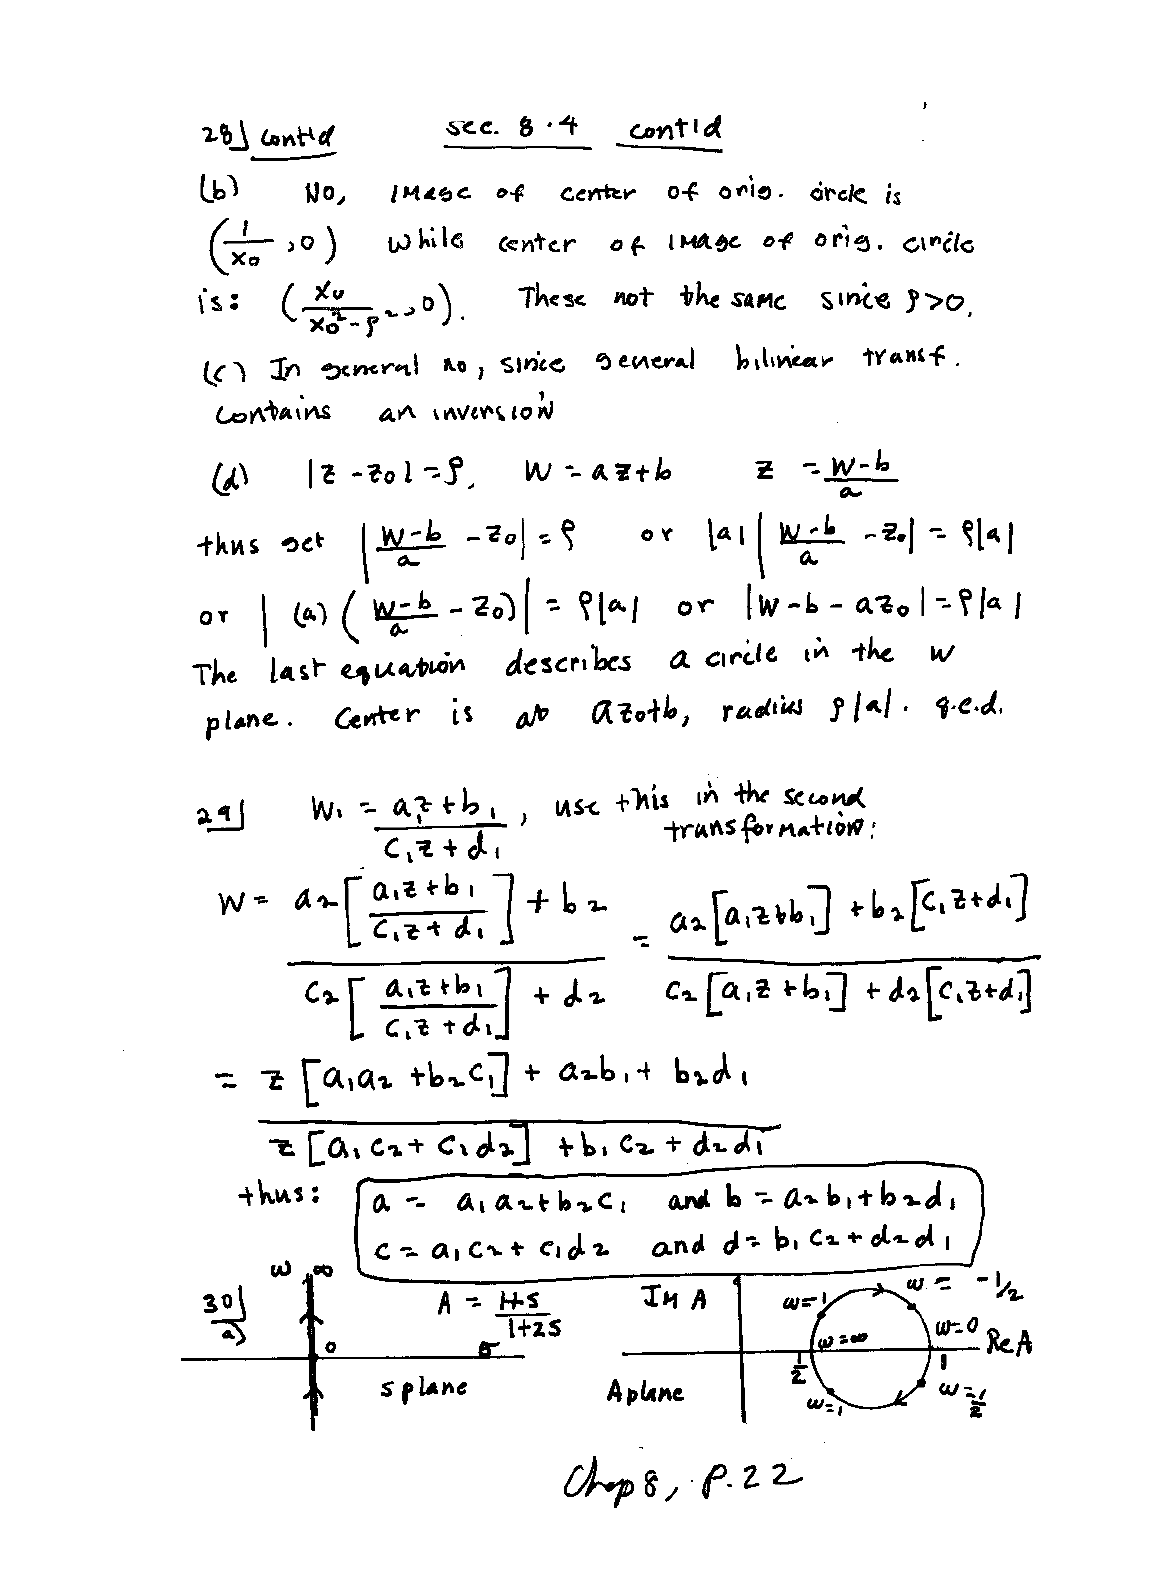 28] cont'd sec. 8.4 cont'd
(b) No, image of center of orig. circle is
(1/x₀, 0) while center of image of orig. circle
is: (x₀/(x₀²-ρ²), 0). These not the same since ρ>0.
(c) In general no, since general bilinear transf.
contains an inversion
(d) |z-z₀|=ρ, w=az+b z = (w-b)/a
thus get |(w-b)/a - z₀| = ρ or |a| |(w-b)/a - z₀| = ρ|a|
or |(a)((w-b)/a - z₀)| = ρ|a| or |w-b-az₀| = ρ|a|
The last equation describes a circle in the w
plane. Center is at az₀+b, radius ρ|a|. q.e.d.
29] w₁ = (a₁z+b₁)/(c₁z+d₁), use this in the second
transformation:
w = (a₂[(a₁z+b₁)/(c₁z+d₁)] + b₂)/(c₂[(a₁z+b₁)/(c₁z+d₁)] + d₂) = (a₂[a₁z+b₁] + b₂[c₁z+d₁])/(c₂[a₁z+b₁] + d₂[c₁z+d₁])
= (z[a₁a₂+b₂c₁] + a₂b₁ + b₂d₁)/(z[a₁c₂+c₁d₂] + b₁c₂ + d₂d₁)
thus: a = a₁a₂+b₂c₁ and b = a₂b₁+b₂d₁
c = a₁c₂+c₁d₂ and d = b₁c₂+d₂d₁
30] a)
ω ∞
0
σ
s plane
A = (1+s)/(1+2s)
Im A
A plane
ω=-1
ω = -1/2
ω=∞
ω=0
Re A
1/2
1
ω=1
ω=1/2
Chap 8, p. 22